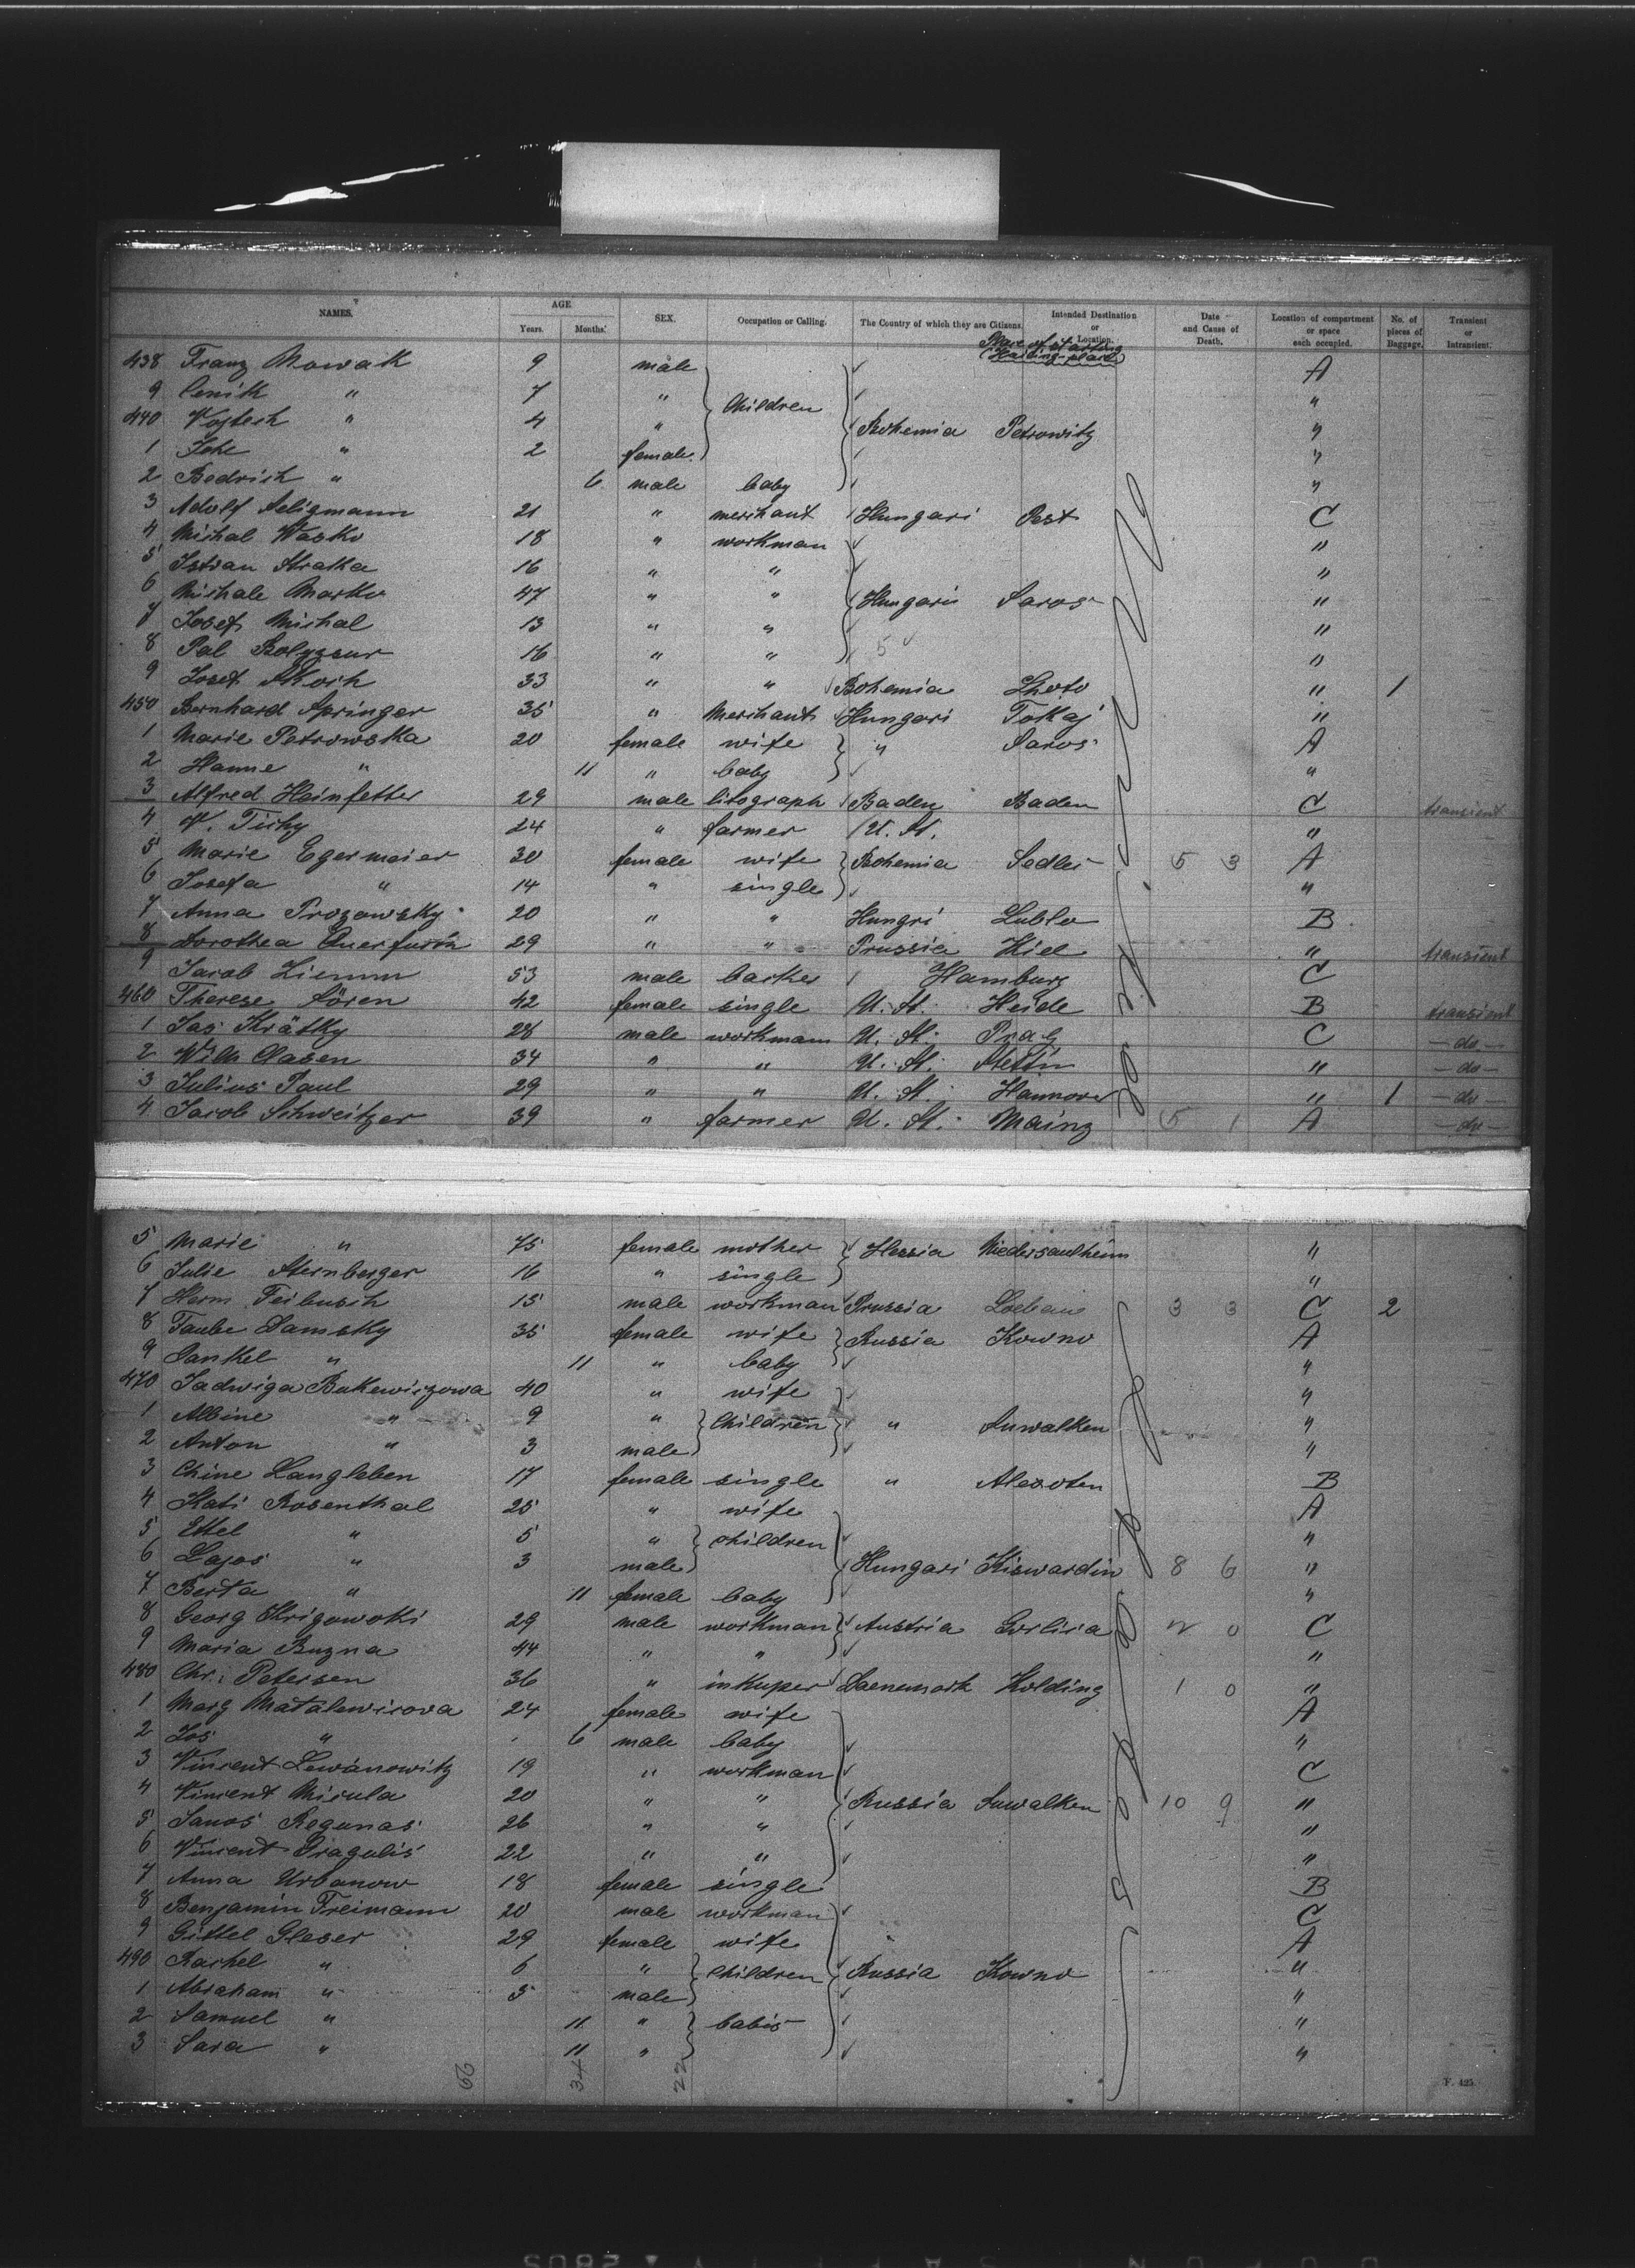 NAMES. AGE Years. Months. SEX. Occupation or Calling. The Country of which they are Citizens. Intended Destination or Location. Date and Cause of Death. Location of compartment or space each occupied. No. of pieces of Baggage. Transient or Intransient.
Place of starting
438 Franz Nowak 9 male A
9 Cenik " 7 " Children "
440 Vojtech " 4 " Bohemia Petrowitz "
1 " 2 female "
2 Bedrich " 6 male baby "
3 Adolf Seligmann 21 " merchant Hungari Pest C
4 Michal Wasko 18 " workman "
5 Istvan Straka 16 " " "
6 Michale Marko 47 " " Hungari Saros "
7 Josef Michal 13 " " "
8 Pal 16 " " 5 "
9 Josef 33 " " Bohemia Lhoto " 1
450 Bernhard Springer 35 " Merchant Hungari Tokaj "
1 Marie Petrowska 20 female wife " Saros A
2 Hanne " 11 " baby "
3 Alfred Heinfetter 29 male litograph Baden Baden C transient
4 V. Tichy 24 " farmer U. St. "
5 Marie Egermeier 30 female wife Bohemia Sedlei 5 3 A
6 Josefa " 14 " single "
7 Anna Prozowsky 20 " " Hungri Lublo B
8 Dorothea Querfurth 29 " " Prussia Kiel " transient
9 Jacob Ziemm 53 male barker Hamburg C
460 Therese Sören 42 female single U. St. Heide B transient
1 Jas. Krätky 28 male workmann U. St. Prag C - do -
2 Wilh Clasen 34 " " U. St. Stettin " - do -
3 Julius Paul 29 " " U. St. Hannover " 1 - do -
4 Jacob Schweitzer 39 " farmer U. St. Mainz 5 1 A - do -
5 Marie " 75 female mother Hessia Niedersaulheim "
6 Julie Sternberger 16 " single "
7 Herm Feibusch 15 male workman Prussia Loebau 3 3 C 2
8 Taube Damsky 35 female wife Russia Kowno A
9 Jankel " 11 " baby "
470 Jadwiga Bukewiczowa 40 " wife "
1 Albine " 9 " Children " Suwalken "
2 Anton " 3 male "
3 Chine Langleben 17 female single " Alexoten B
4 Kati Rosenthal 25 " wife A
5 Ettel " 5 " children "
6 Lajos " 3 male Hungari Kiswardin 8 6 "
7 Berta " 11 female baby "
8 Georg Skrigowski 29 male workman Austria Gorlica 2 0 C
9 Maria Buzna 44 " " "
480 Chr. Petersen 36 " inkuper Daenemark Kolding 1 0 "
1 Marg Matalewicova 24 female wife A
2 Jos " 6 male baby "
3 Vincent Lewanowitz 19 " workman C
4 Vincent Micula 20 " " Russia Suwalken 10 9 "
5 Janos Regunas 26 " " "
6 Vincent Dragulis 22 " " "
7 Anna Urbanow 18 female single B
8 Benjamin Freimann 20 male workman C
9 Gittel Gleser 29 female wife A
490 Rachel " 6 " Children Russia Kowno "
1 Abraham " 5 male "
2 Samuel " 11 " babies "
3 Sara " 11 " "
66 34 22
F. 425.